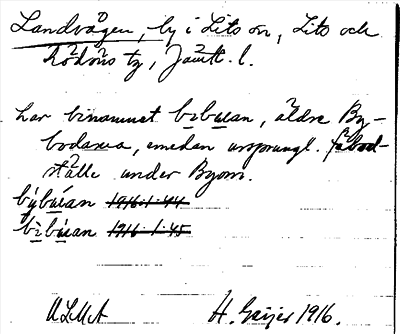 Landvågen, by i Lits sn, Lits och
Rödöns tg, Jämtl. l.
har binamnet bibúan, äldre By-
bodarna, emedan ursprungl. fäbod-
ställe under Byom.
býbúan 1916:1:44
bìbúan 1916:1:45
ULMA H. Geijer 1916.